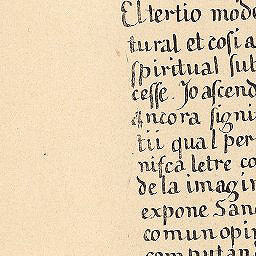 El tertio mode
tural et cosi a
spiritual sub
cesse. Jo ascend
ancora signi
tii qual per
nifca letre co
de la imagin
expone San
comun opin
computan